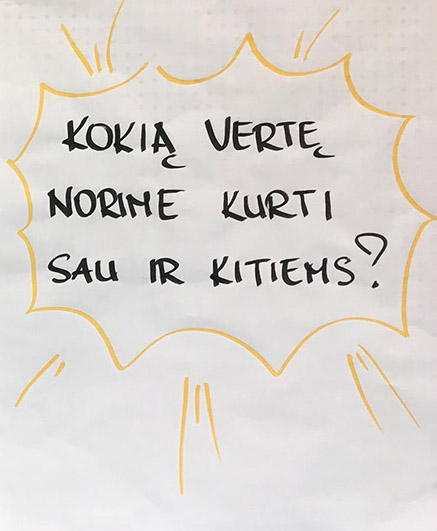 KOKIĄ VERTĘ
NORIME KURTI
SAU IR KITIEMS?